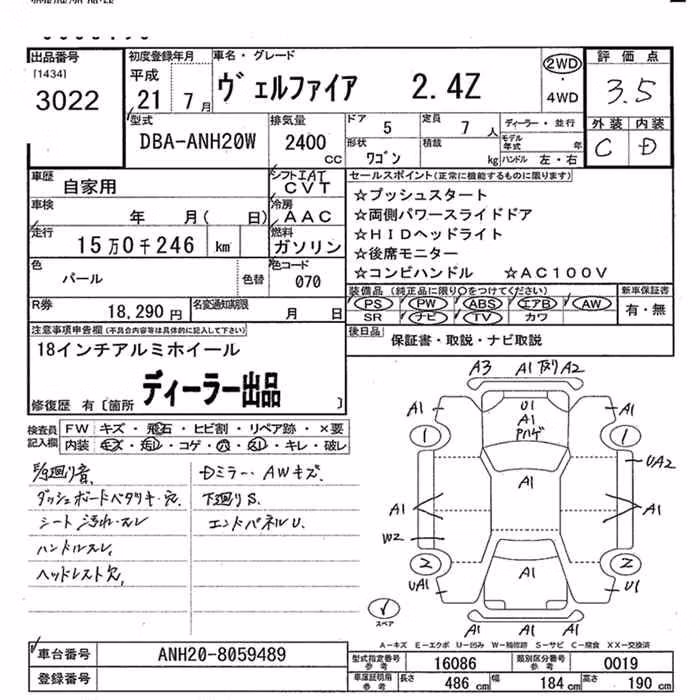 出品番号
[1434]
3022
初度登録年月
平成
21 7 月
車名・グレード
ヴェルファイア 2.4Z
2WD
・
4WD
評価点
3.5
外装 内装
C D
型式
DBA-ANH20W
排気量
2400
CC
ドア 5
定員 7 人
ディーラー・並行
モデル年式 年
形状
ワゴン
積載 kg
ハンドル 左・右
車歴
自家用
シフト IAT
CVT
車検
年 月( 日)
冷房
AAC
走行
15万0千246 km
燃料
ガソリン
色
パール
色替
色コード
070
R券
18,290 円
名変通知期限
月 日
セールスポイント(正常に機能するものに限ります)
☆プッシュスタート
☆両側パワースライドドア
☆HIDヘッドライト
☆後席モニター
☆コンビハンドル ☆AC100V
装備品 (純正品に限り○をつけてください)
PS PW ABS エアB AW
SR ナビ TV カワ
新車保証書
有・無
後日品
保証書・取説・ナビ取説
注意事項申告欄(不具合内容等は具体的に記入して下さい)
18インチアルミホイール
ディーラー出品
修復歴 有〔箇所 〕
検査員記入欄
FW キズ・飛石・ヒビ割・リペア跡・×要
内装 キズ・汚レ・コゲ・穴・スレ・キレ・破レ
廻り音、
ダッシュボードベタツキ・穴、
シート 汚れ・スレ
ハンドルスレ、
ヘッドレスト穴、
Dミラー・AWキズ、
下廻りS、
エンドパネルU、
A3 A1 A2
A1 U1 A1
A1
ハゲ
1 1
A1
UA2
A1 A1
W2
2 2
UA1 A1 U1
A1 A1 A1
スペア
A-キズ E-エクボ U-凹み W-補修跡 S-サビ C-腐食 XX-交換済
車台番号
ANH20-8059489
登録番号
型式指定番号
参考
16086
類別区分番号
参考
0019
車庫証明用
参考
長さ 486 cm
幅 184 cm
高さ 190 cm